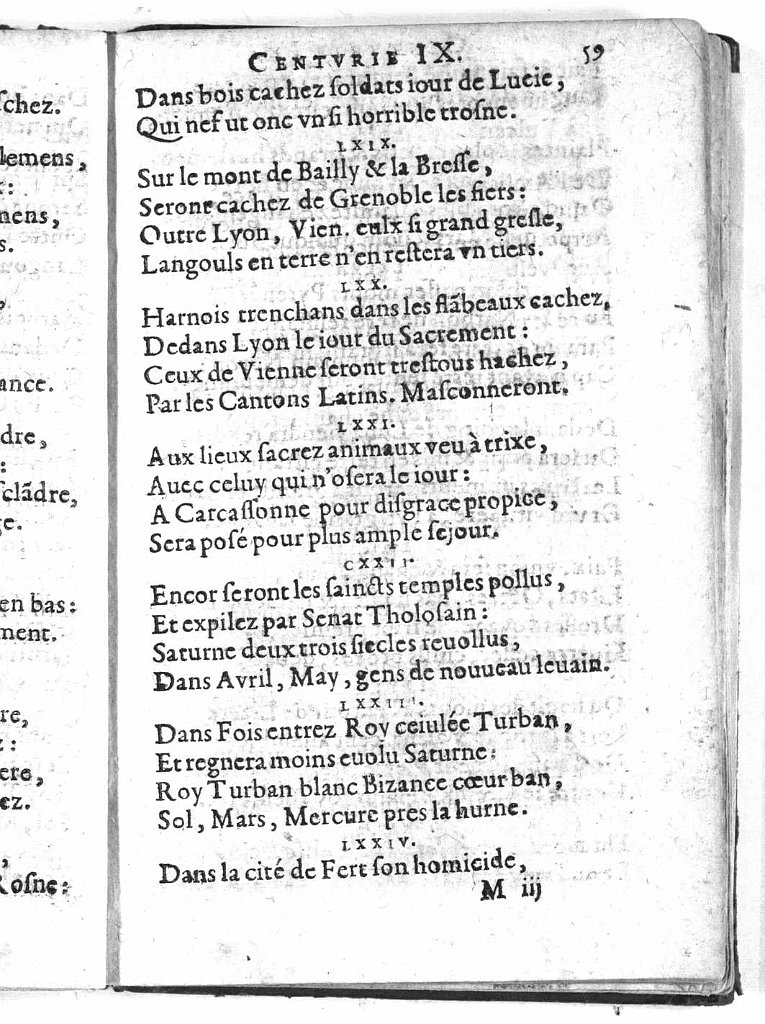 ſchez.
lemens,
mens,
s.
ance.
dre,
:
ſclãdre,
ge.
en bas:
ment.
re,
:
ere,
ez.
,
Roſne:
CENTVRIE IX. 59
Dans bois cachez ſoldats iour de Lucie,
Qui nef ut onc vn ſi horrible troſne.
LXIX.
Sur le mont de Bailly & la Breſſe,
Seront cachez de Grenoble les fiers:
Outre Lyon, Vien. eulx ſi grand greſle,
Langouls en terre n'en reſtera vn tiers.
LXX.
Harnois trenchans dans les flãbeaux cachez,
Dedans Lyon le iout du Sacrement:
Ceux de Vienne ſeront treſtous hachez,
Par les Cantons Latins. Maſconneront.
LXXI.
Aux lieux ſacrez animaux veu à trixe,
Auec celuy qui n'oſera le iour:
A Carcaſſonne pour diſgrace propice,
Sera poſé pour plus ample ſejour.
CXXII.
Encor ſeront les ſaincts temples pollus,
Et expilez par Senat Tholoſain:
Saturne deux trois ſiecles reuollus,
Dans Avril, May, gens de nouueau leuain.
LXXIII.
Dans Fois entrez Roy ceiulée Turban,
Et regnera moins euolu Saturne:
Roy Turban blanc Bizance cœur ban,
Sol, Mars, Mercure pres la hurne.
LXXIV.
Dans la cité de Fert ſon homicide,
M iij